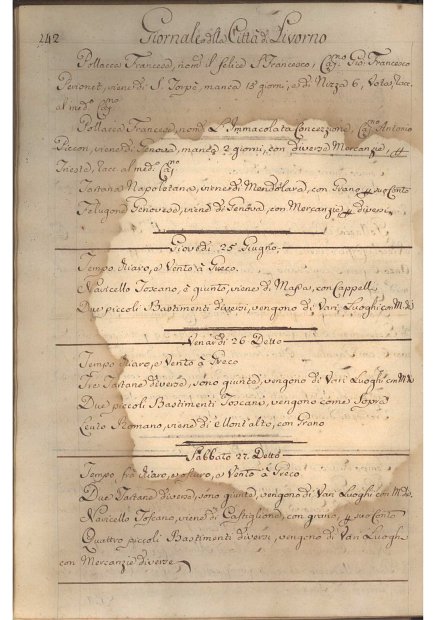 242 Giornale della Città di Livorno
Pollacca Francese, nom.ª il felice S. Francesco, Cap.no Gio: Francesco
Peronet, viene di S. Torpè, manca 15 giorni, e di Nizza 6, Vota, racc.
al med.o Cap.no
Pollacca Francese, nom.ª L'Immacolata Concezzione, Cap.no Antonio
Piccon, viene di Genova, manca 2 giorni, con diverse Mercanzie, p
Trieste, racc. al med.o Cap.no
Tartana Napoletana, viene di Mondolara, con Grano p suo Conto
Felugone Genovese, viene di Genova, con Mercanzie p diversi
Giovedì 25 Giugno
Tempo chiaro, e Vento à Greco.
Navicello Toscano, è giunto, viene di Massa, con Cappelli
Due piccoli Bastimenti diversi, vengono di Vari Luoghi con M. D.
Venardi 26 Detto
Tempo chiaro, e Vento à Greco
Tre Tartane diverse, sono giunte, vengono di Vari Luoghi con M. D.
Due piccoli Bastimenti Toscani, vengono come Sopra
Leuto Romano, viene di Mont'alto, con Grano
Sabbato 27 Detto
Tempo frà chiaro, e oscuro, e Vento à Greco
Due Tartane diverse, sono giunte, vengono di Vari Luoghi con M. D.
Navicello Toscano, viene di Castiglione, con grano, p suo Conto
Quattro piccoli Bastimenti diversi, vengono di Vari Luoghi
con Mercanzie diverse